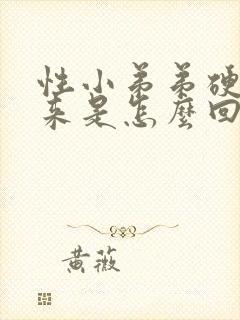 性小弟弟硬
来是怎麼回
黄薇